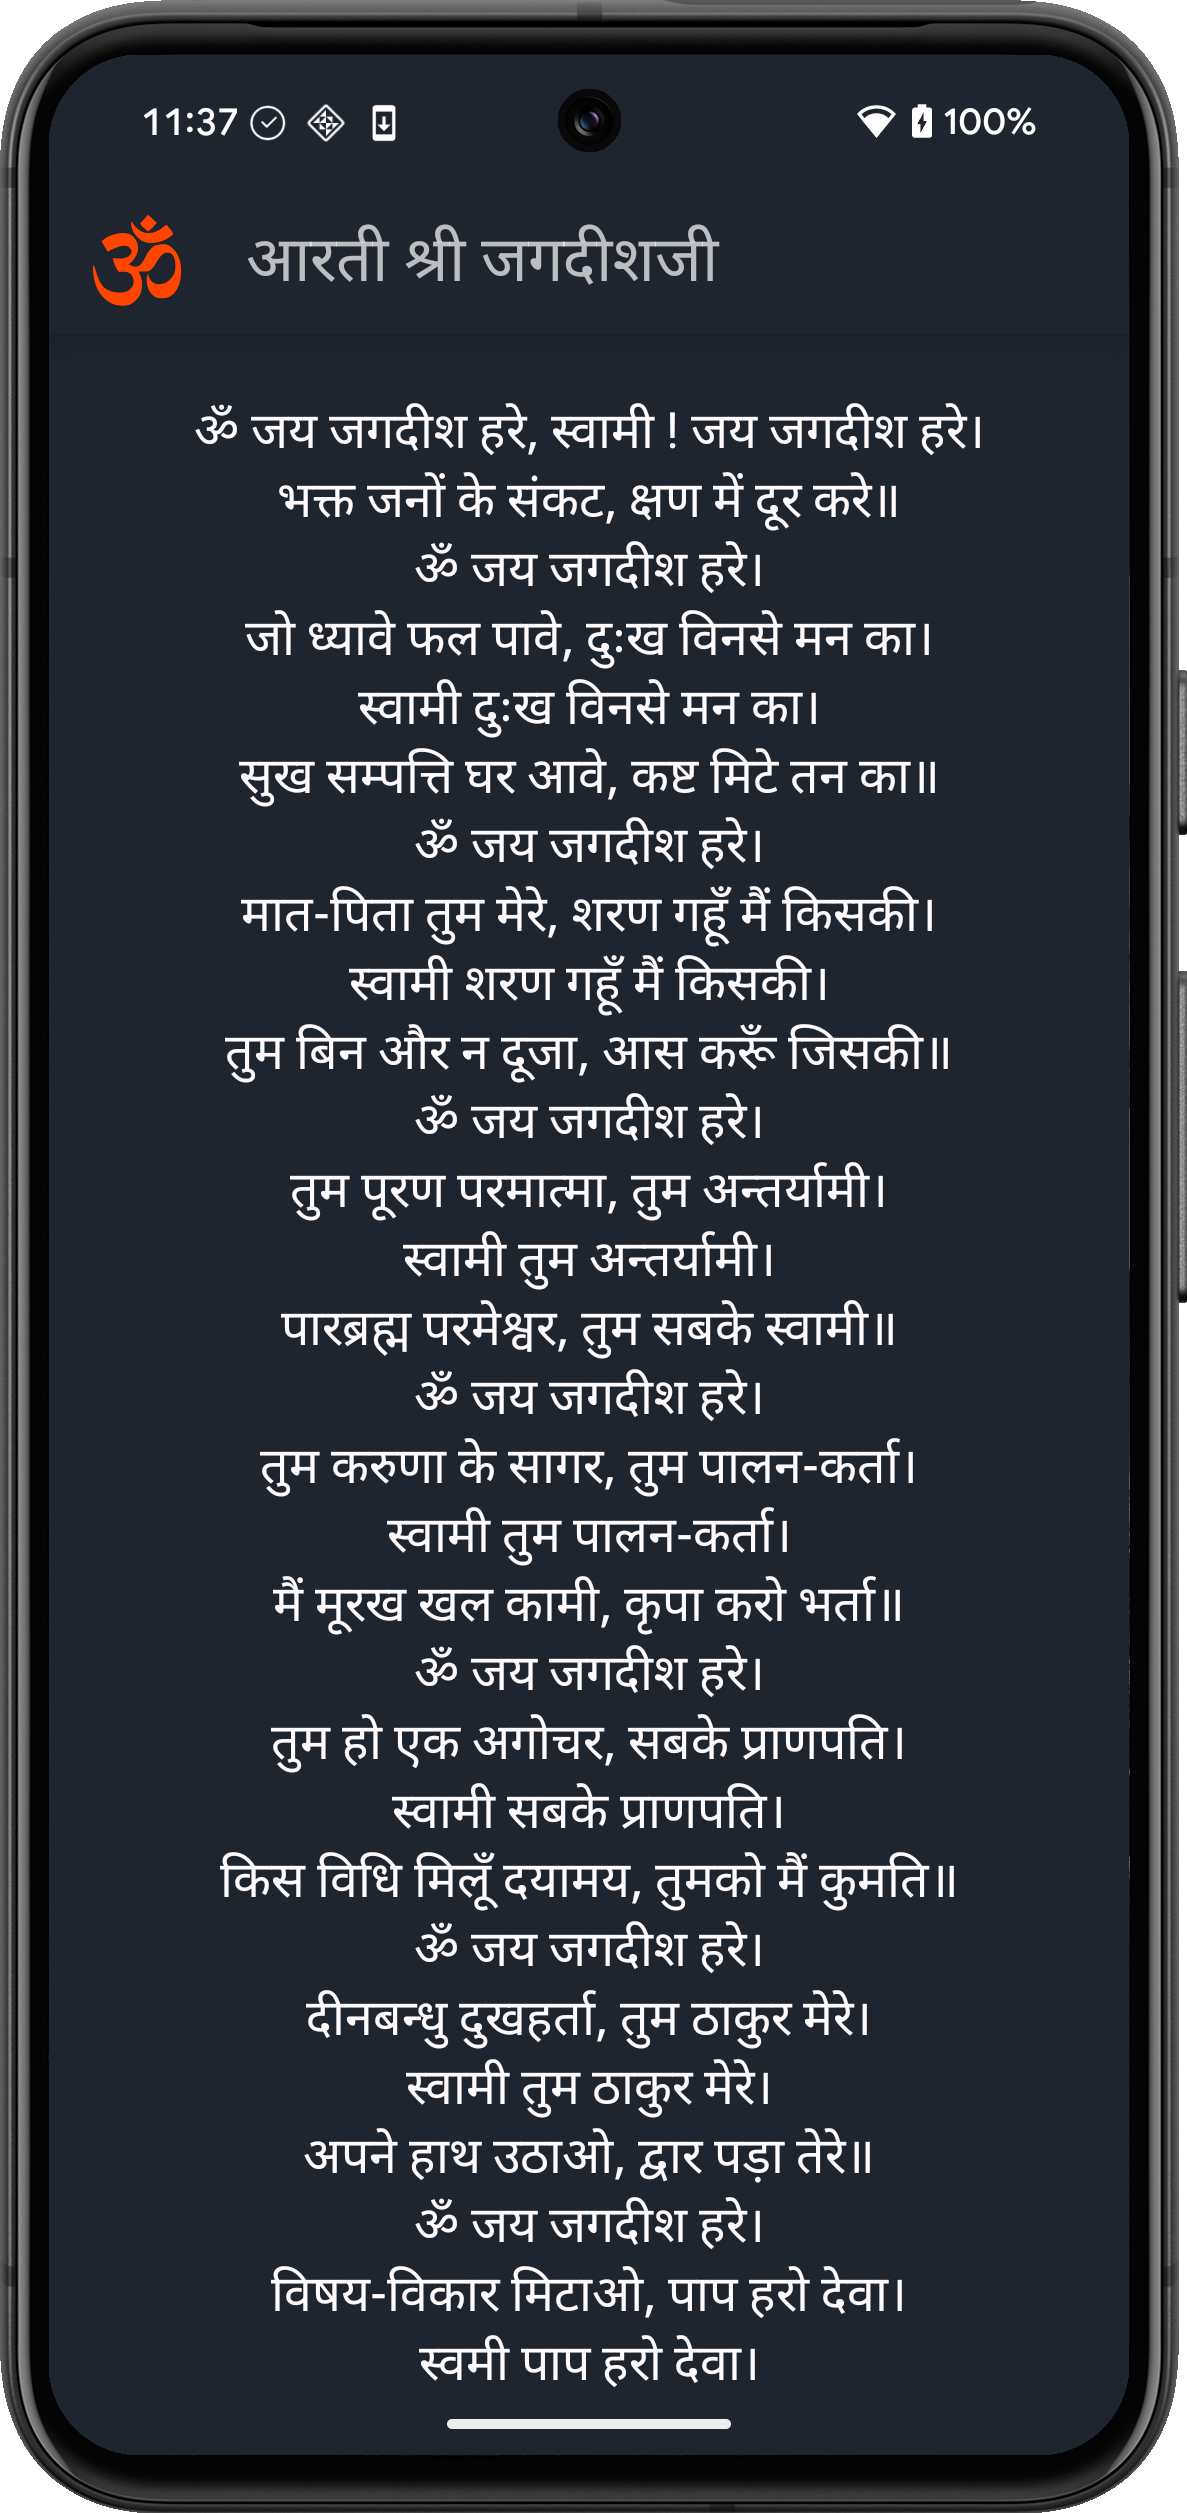 11:37 100%
ॐ आरती श्री जगदीशजी
ॐ जय जगदीश हरे, स्वामी ! जय जगदीश हरे।
भक्त जनों के संकट, क्षण में दूर करे॥
ॐ जय जगदीश हरे।
जो ध्यावे फल पावे, दुःख विनसे मन का।
स्वामी दुःख विनसे मन का।
सुख सम्पत्ति घर आवे, कष्ट मिटे तन का॥
ॐ जय जगदीश हरे।
मात-पिता तुम मेरे, शरण गहूँ मैं किसकी।
स्वामी शरण गहूँ मैं किसकी।
तुम बिन और न दूजा, आस करूँ जिसकी॥
ॐ जय जगदीश हरे।
तुम पूरण परमात्मा, तुम अन्तर्यामी।
स्वामी तुम अन्तर्यामी।
पारब्रह्म परमेश्वर, तुम सबके स्वामी॥
ॐ जय जगदीश हरे।
तुम करुणा के सागर, तुम पालन-कर्ता।
स्वामी तुम पालन-कर्ता।
मैं मूरख खल कामी, कृपा करो भर्ता॥
ॐ जय जगदीश हरे।
तुम हो एक अगोचर, सबके प्राणपति।
स्वामी सबके प्राणपति।
किस विधि मिलूँ दयामय, तुमको मैं कुमति॥
ॐ जय जगदीश हरे।
दीनबन्धु दुखहर्ता, तुम ठाकुर मेरे।
स्वामी तुम ठाकुर मेरे।
अपने हाथ उठाओ, द्वार पड़ा तेरे॥
ॐ जय जगदीश हरे।
विषय-विकार मिटाओ, पाप हरो देवा।
स्वमी पाप हरो देवा।